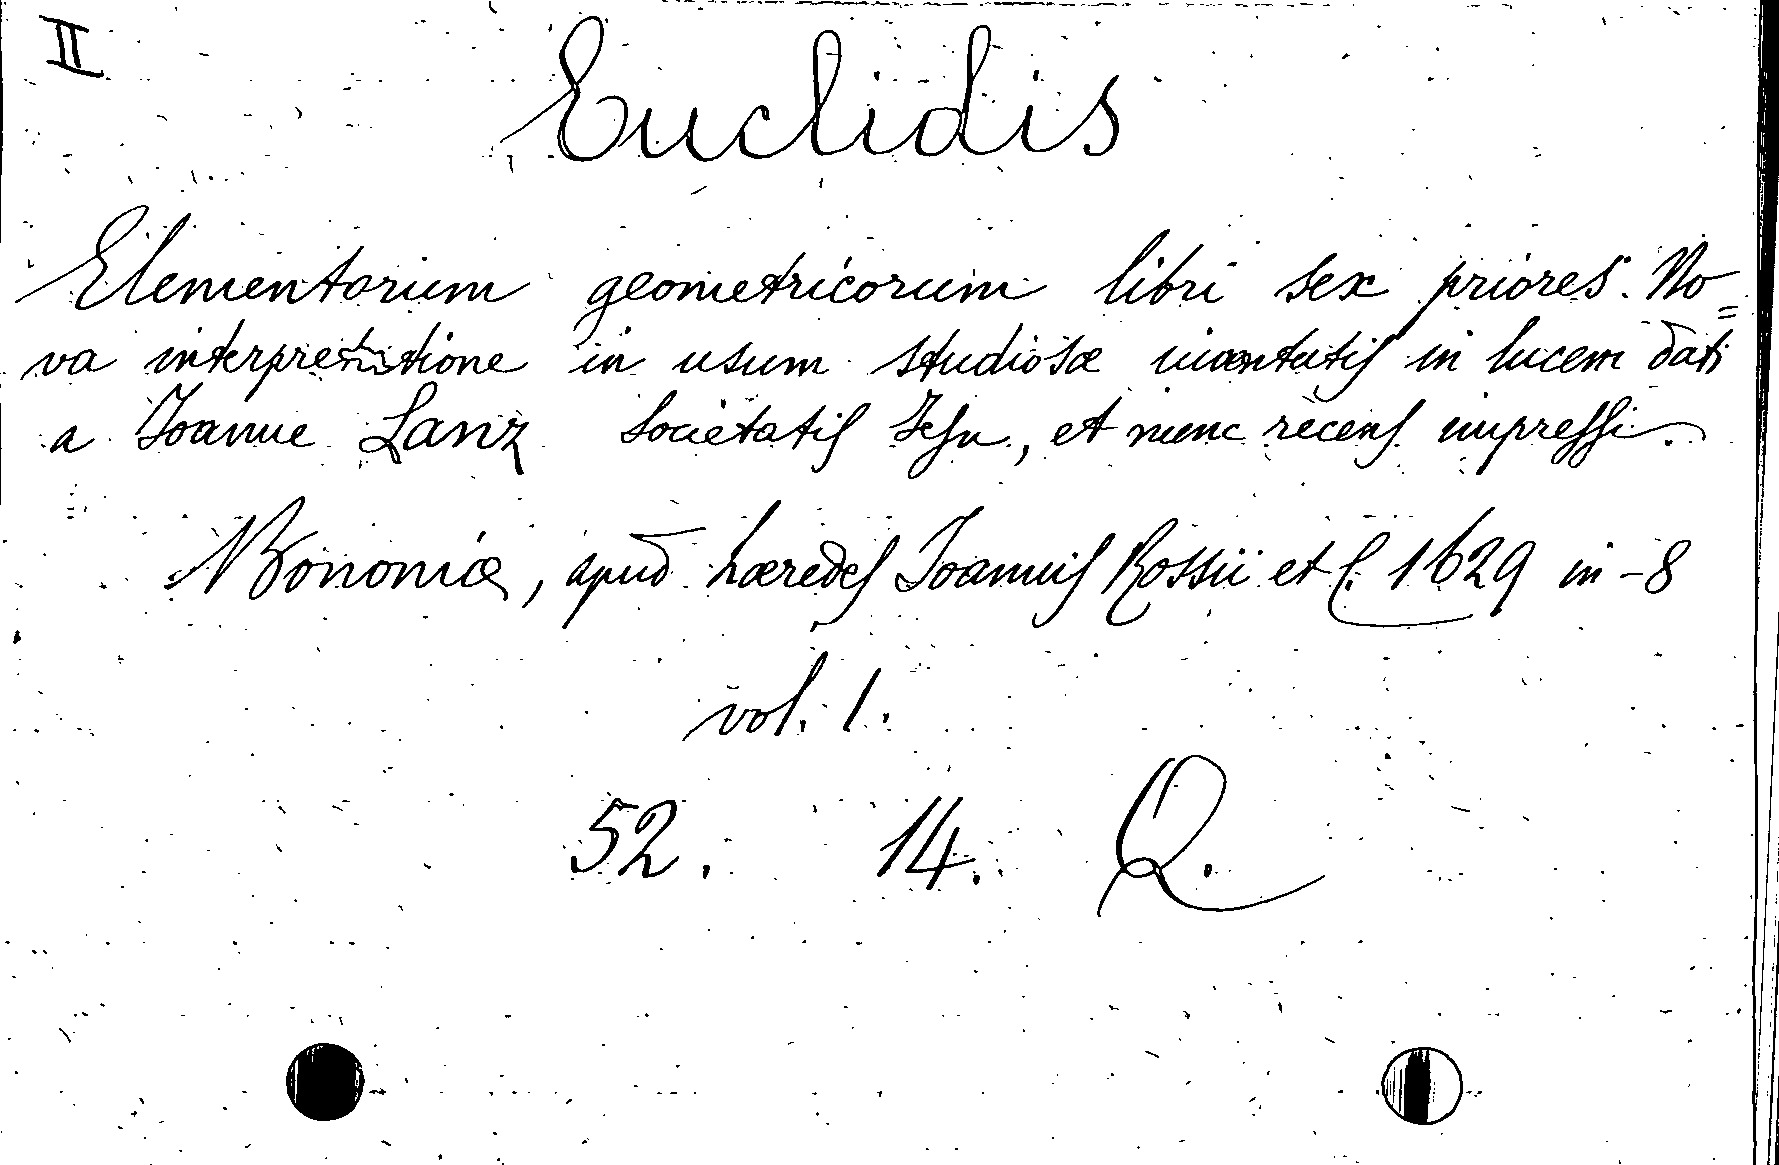 II
Euclidis
Elementorum geometricorum libri sex priores. No=
va interpretatione in usum studiosæ iuventutis in lucem dati
a Joanne Lanz Societatis Jesu, et nunc recens impressi.
Bononiæ, apud hæredes Joannis Rossii et C. 1629 in-8
vol. 1.
52. 14. Q.